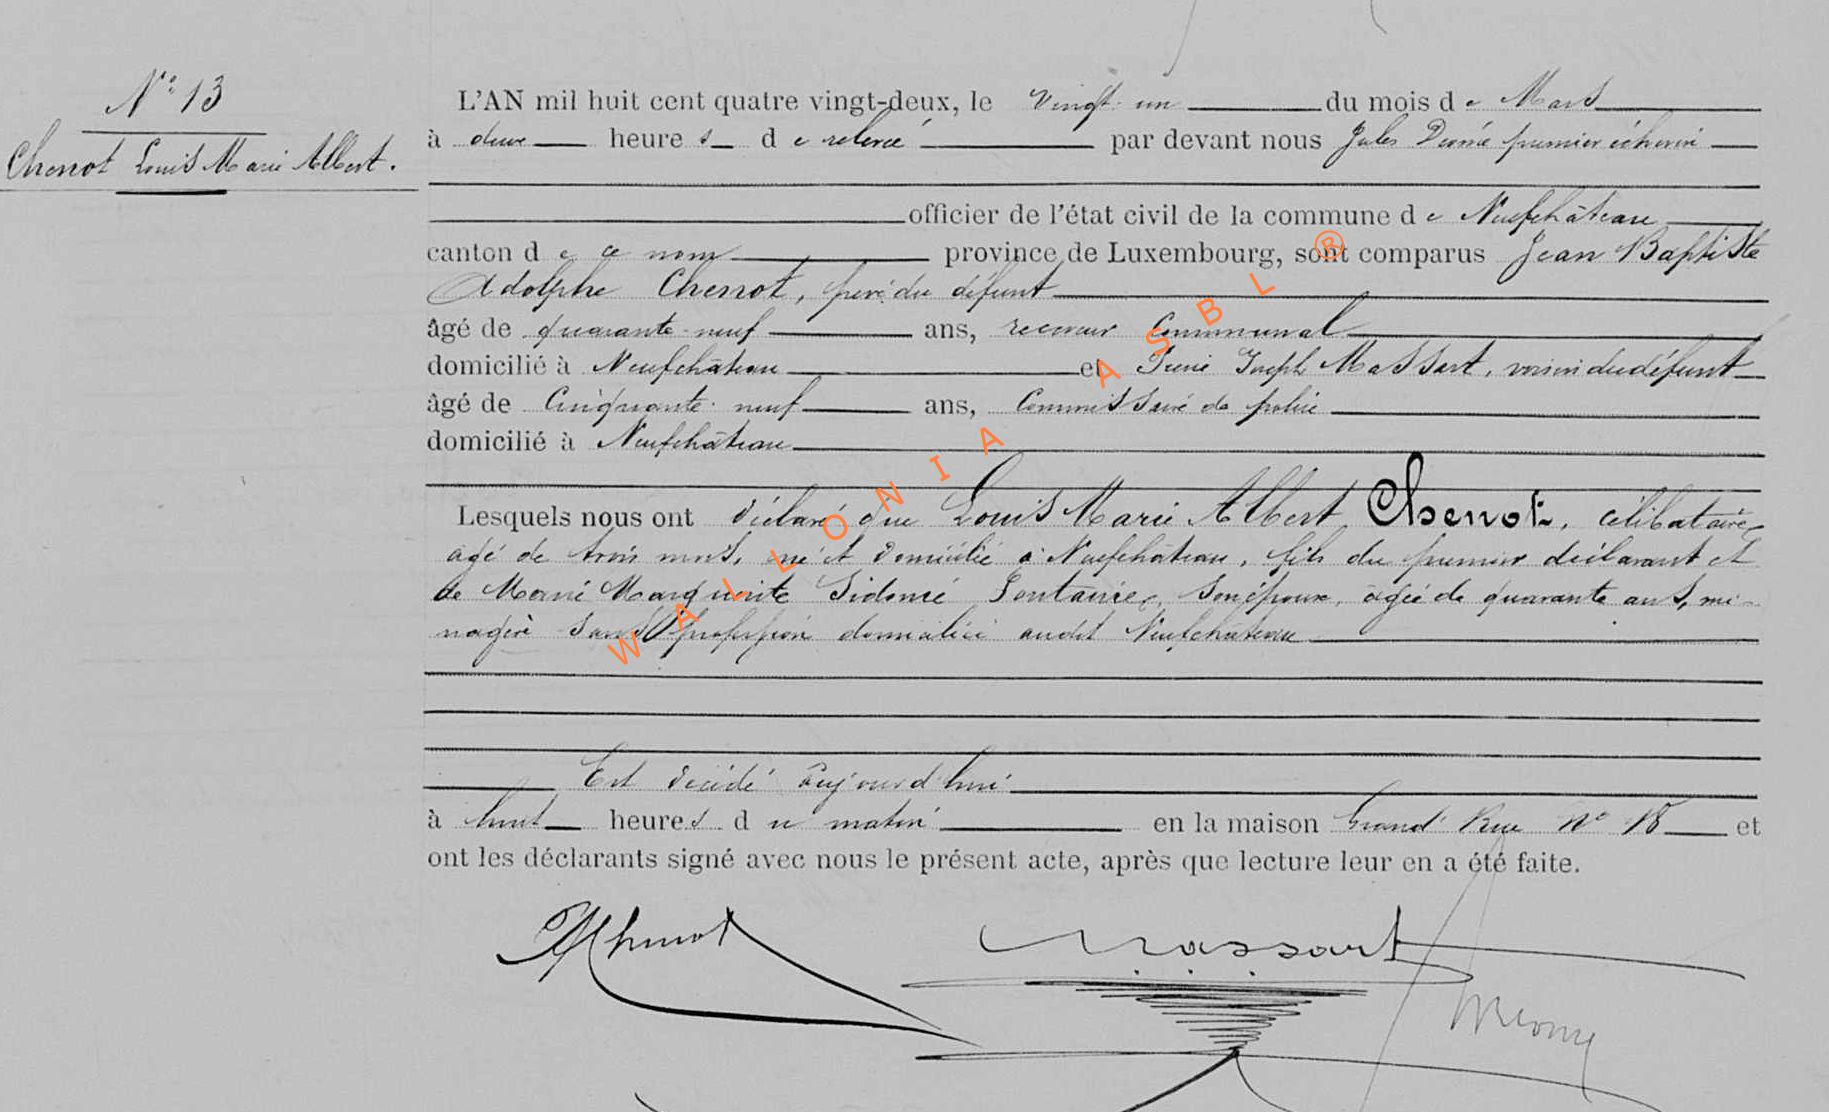 N° 13
Chenot Louis Marie Albert.
L'AN mil huit cent quatre vingt-deux, le vingt-un du mois de Mars
à deux heures de relevé par devant nous Jules premier échevin
officier de l'état civil de la commune de Neufchâteau
canton de ce nom province de Luxembourg, sont comparus Jean Baptiste
Adolphe Chenot, père du défunt
âgé de quarante-neuf ans, receveur communal
domicilié à Neufchâteau et Joseph Massart, voisin du défunt
âgé de Cinquante-neuf ans, Commissaire de police
domicilié à Neufchâteau
Lesquels nous ont déclaré que Louis Marie Albert Chenot, célibataire
agé de trois mois, né et domicilié à Neufchâteau, fils du premier déclarant et
de Marie Marguerite Sidonie Fontaine, son épouse, agée de quarante ans, mé-
nagère sans profession domiciliée audit Neufchâteau
Est décédé aujourd'hui
à huit heures du matin en la maison Grand Rue N° 18 et
ont les déclarants signé avec nous le présent acte, après que lecture leur en a été faite.
Chenot Massart
WALLONIA ASBL ®